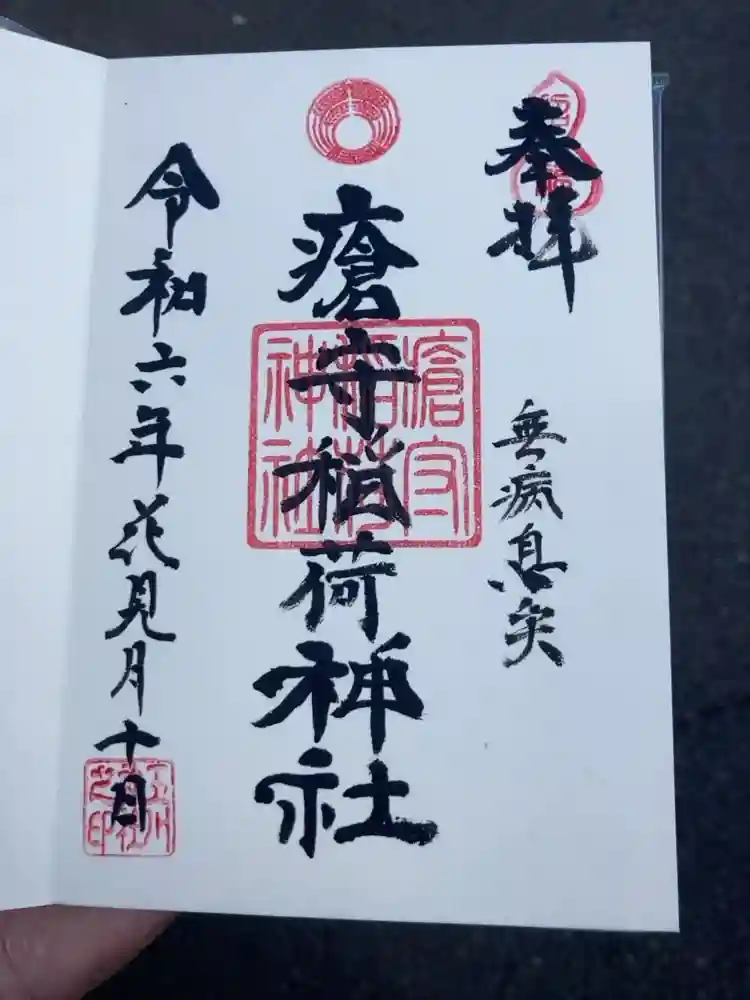 奉拝
無病息灾
瘡守稲荷神社
瘡守
稲荷
神社
令和六年花見月十日